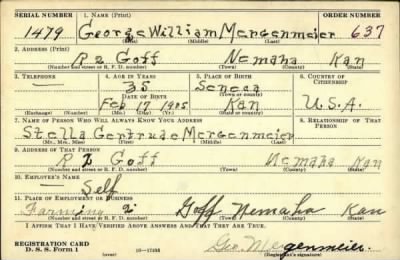 SERIAL NUMBER 1. NAME (Print) ORDER NUMBER
1479 George William Mergenmeier 637
(First) (Middle) (Last)
2. ADDRESS (Print)
R 2 Goff Nemaha Kan
(Number and street or R. F. D. number) (Town) (County) (State)
3. TELEPHONE 4. AGE IN YEARS 5. PLACE OF BIRTH 6. COUNTRY OF CITIZENSHIP
— 35 Seneca
DATE OF BIRTH (Town or county)
Feb 17 1905 Kan U.S.A.
(Exchange) (Number) (Mo.) (Day) (Yr.) (State or country)
7. NAME OF PERSON WHO WILL ALWAYS KNOW YOUR ADDRESS 8. RELATIONSHIP OF THAT PERSON
Stella Gertrude Mergenmeier
(Mr., Mrs., Miss) (First) (Middle) (Last)
9. ADDRESS OF THAT PERSON
R 2 Goff Nemaha Kan
(Number and street or R. F. D. number) (Town) (County) (State)
10. EMPLOYER'S NAME
— Self
11. PLACE OF EMPLOYMENT OR BUSINESS
Farming 2 Goff Nemaha Kan
(Number and street or R. F. D. number) (Town) (County) (State)
I AFFIRM THAT I HAVE VERIFIED ABOVE ANSWERS AND THAT THEY ARE TRUE.
REGISTRATION CARD
D. S. S. Form 1 (over) Geo. Mergenmeier.
(Registrant's signature)